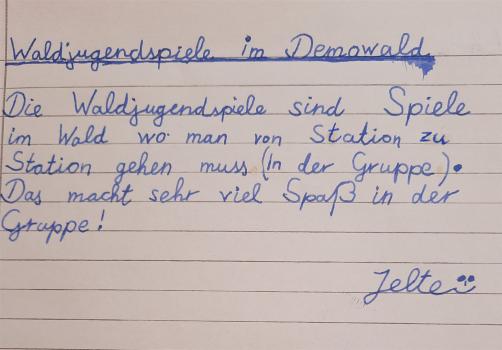 Waldjugendspiele im Demowald
Die Waldjugendspiele sind Spiele
im Wald wo man von Station zu
Station gehen muss (In der Gruppe).
Das macht sehr viel Spaß in der
Gruppe!
Jelte